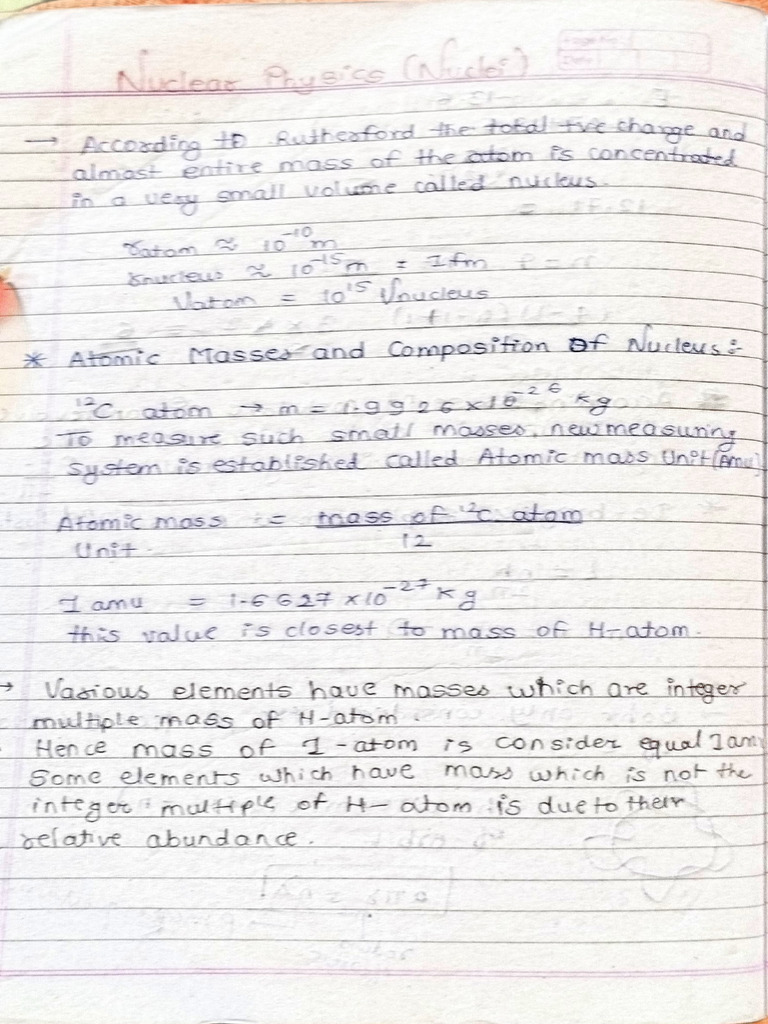 Nuclear Physics (Nuclei)
→ According to Rutherford the total +ve charge and
almost entire mass of the atom is concentrated
in a very small volume called nucleus.
ratom ≈ 10⁻¹⁰m
rnucleus ≈ 10⁻¹⁵m = 1fm
Vatom = 10¹⁵ Vnucleus
* Atomic Masses and Composition of Nucleus :-
¹²C atom → m = 1.9926×10⁻²⁶ kg
To measure such small masses, new measuring
system is established called Atomic mass Unit (Amu)
Atomic mass := mass of ¹²C atom
Unit. 12
1 amu = 1.6627 ×10⁻²⁷ kg
this value is closest to mass of H-atom.
→ Various elements have masses which are integer
multiple mass of H-atom.
Hence mass of 1-atom is consider equal 1am
Some elements which have mass which is not the
integer multiple of H-atom is due to their
relative abundance.